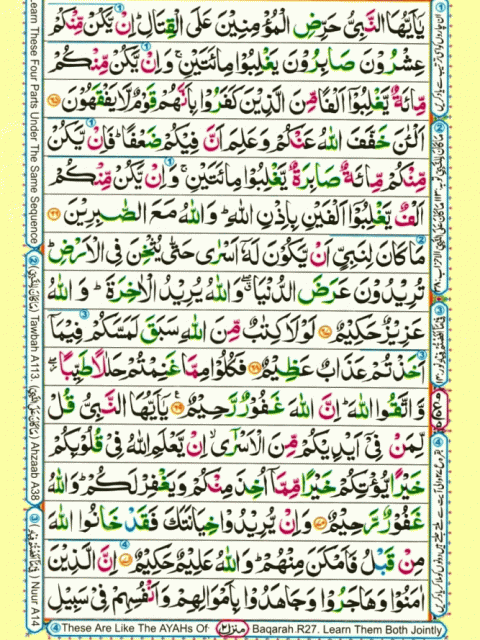 يٰۤاَيُّهَا النَّبِىُّ حَرِّضِ الْمُؤْمِنِيْنَ عَلَى الْقِتَالِ ؕ اِنْ يَّكُنْ مِّنْكُمْ
عِشْرُوْنَ صَابِرُوْنَ يَغْلِبُوْا مِائَتَيْنِ ۚ وَاِنْ يَّكُنْ مِّنْكُمْ
مِّائَةٌ يَّغْلِبُوْۤا اَلْفًا مِّنَ الَّذِيْنَ كَفَرُوْا بِاَنَّهُمْ قَوْمٌ لَّا يَفْقَهُوْنَ ﴿۶۵﴾
اَلْـٰٔنَ خَفَّفَ اللّٰهُ عَنْكُمْ وَعَلِمَ اَنَّ فِيْكُمْ ضَعْفًا ؕ فَاِنْ يَّكُنْ
مِّنْكُمْ مِّائَةٌ صَابِرَةٌ يَّغْلِبُوْا مِائَتَيْنِ ۚ وَاِنْ يَّكُنْ مِّنْكُمْ
اَلْفٌ يَّغْلِبُوْۤا اَلْفَيْنِ بِاِذْنِ اللّٰهِ ؕ وَاللّٰهُ مَعَ الصّٰبِرِيْنَ ﴿۶۶﴾
مَا كَانَ لِنَبِىٍّ اَنْ يَّكُوْنَ لَهٗۤ اَسْرٰى حَتّٰى يُثْخِنَ فِى الْاَرْضِ ؕ
تُرِيْدُوْنَ عَرَضَ الدُّنْيَا ۖ وَاللّٰهُ يُرِيْدُ الْاٰخِرَةَ ؕ وَاللّٰهُ
عَزِيْزٌ حَكِيْمٌ ﴿۶۷﴾ لَوْلَا كِتٰبٌ مِّنَ اللّٰهِ سَبَقَ لَمَسَّكُمْ فِيْمَاۤ
اَخَذْتُمْ عَذَابٌ عَظِيْمٌ ﴿۶۸﴾ فَكُلُوْا مِمَّا غَنِمْتُمْ حَلٰلًا طَيِّبًا ۖ
وَّاتَّقُوا اللّٰهَ ؕ اِنَّ اللّٰهَ غَفُوْرٌ رَّحِيْمٌ ﴿۶۹﴾ يٰۤاَيُّهَا النَّبِىُّ قُلْ
لِّمَنْ فِىْۤ اَيْدِيْكُمْ مِّنَ الْاَسْرٰٓى ۙ اِنْ يَّعْلَمِ اللّٰهُ فِىْ قُلُوْبِكُمْ
خَيْرًا يُّؤْتِكُمْ خَيْرًا مِّمَّاۤ اُخِذَ مِنْكُمْ وَيَغْفِرْ لَكُمْ ؕ وَاللّٰهُ
غَفُوْرٌ رَّحِيْمٌ ﴿۷۰﴾ وَاِنْ يُّرِيْدُوْا خِيَانَتَكَ فَقَدْ خَانُوا اللّٰهَ
مِنْ قَبْلُ فَاَمْكَنَ مِنْهُمْ ؕ وَاللّٰهُ عَلِيْمٌ حَكِيْمٌ ﴿۷۱﴾ اِنَّ الَّذِيْنَ
اٰمَنُوْا وَهَاجَرُوْا وَجَاهَدُوْا بِاَمْوَالِهِمْ وَاَنْفُسِهِمْ فِىْ سَبِيْلِ
④ These Are Like The AYAHs Of Baqarah.R27. Learn Them Both Jointly
منزل ۲
earn These Four Parts Under The Same Sequence
② Tawbah A113. Ahzaab A38
③ Nuur A14